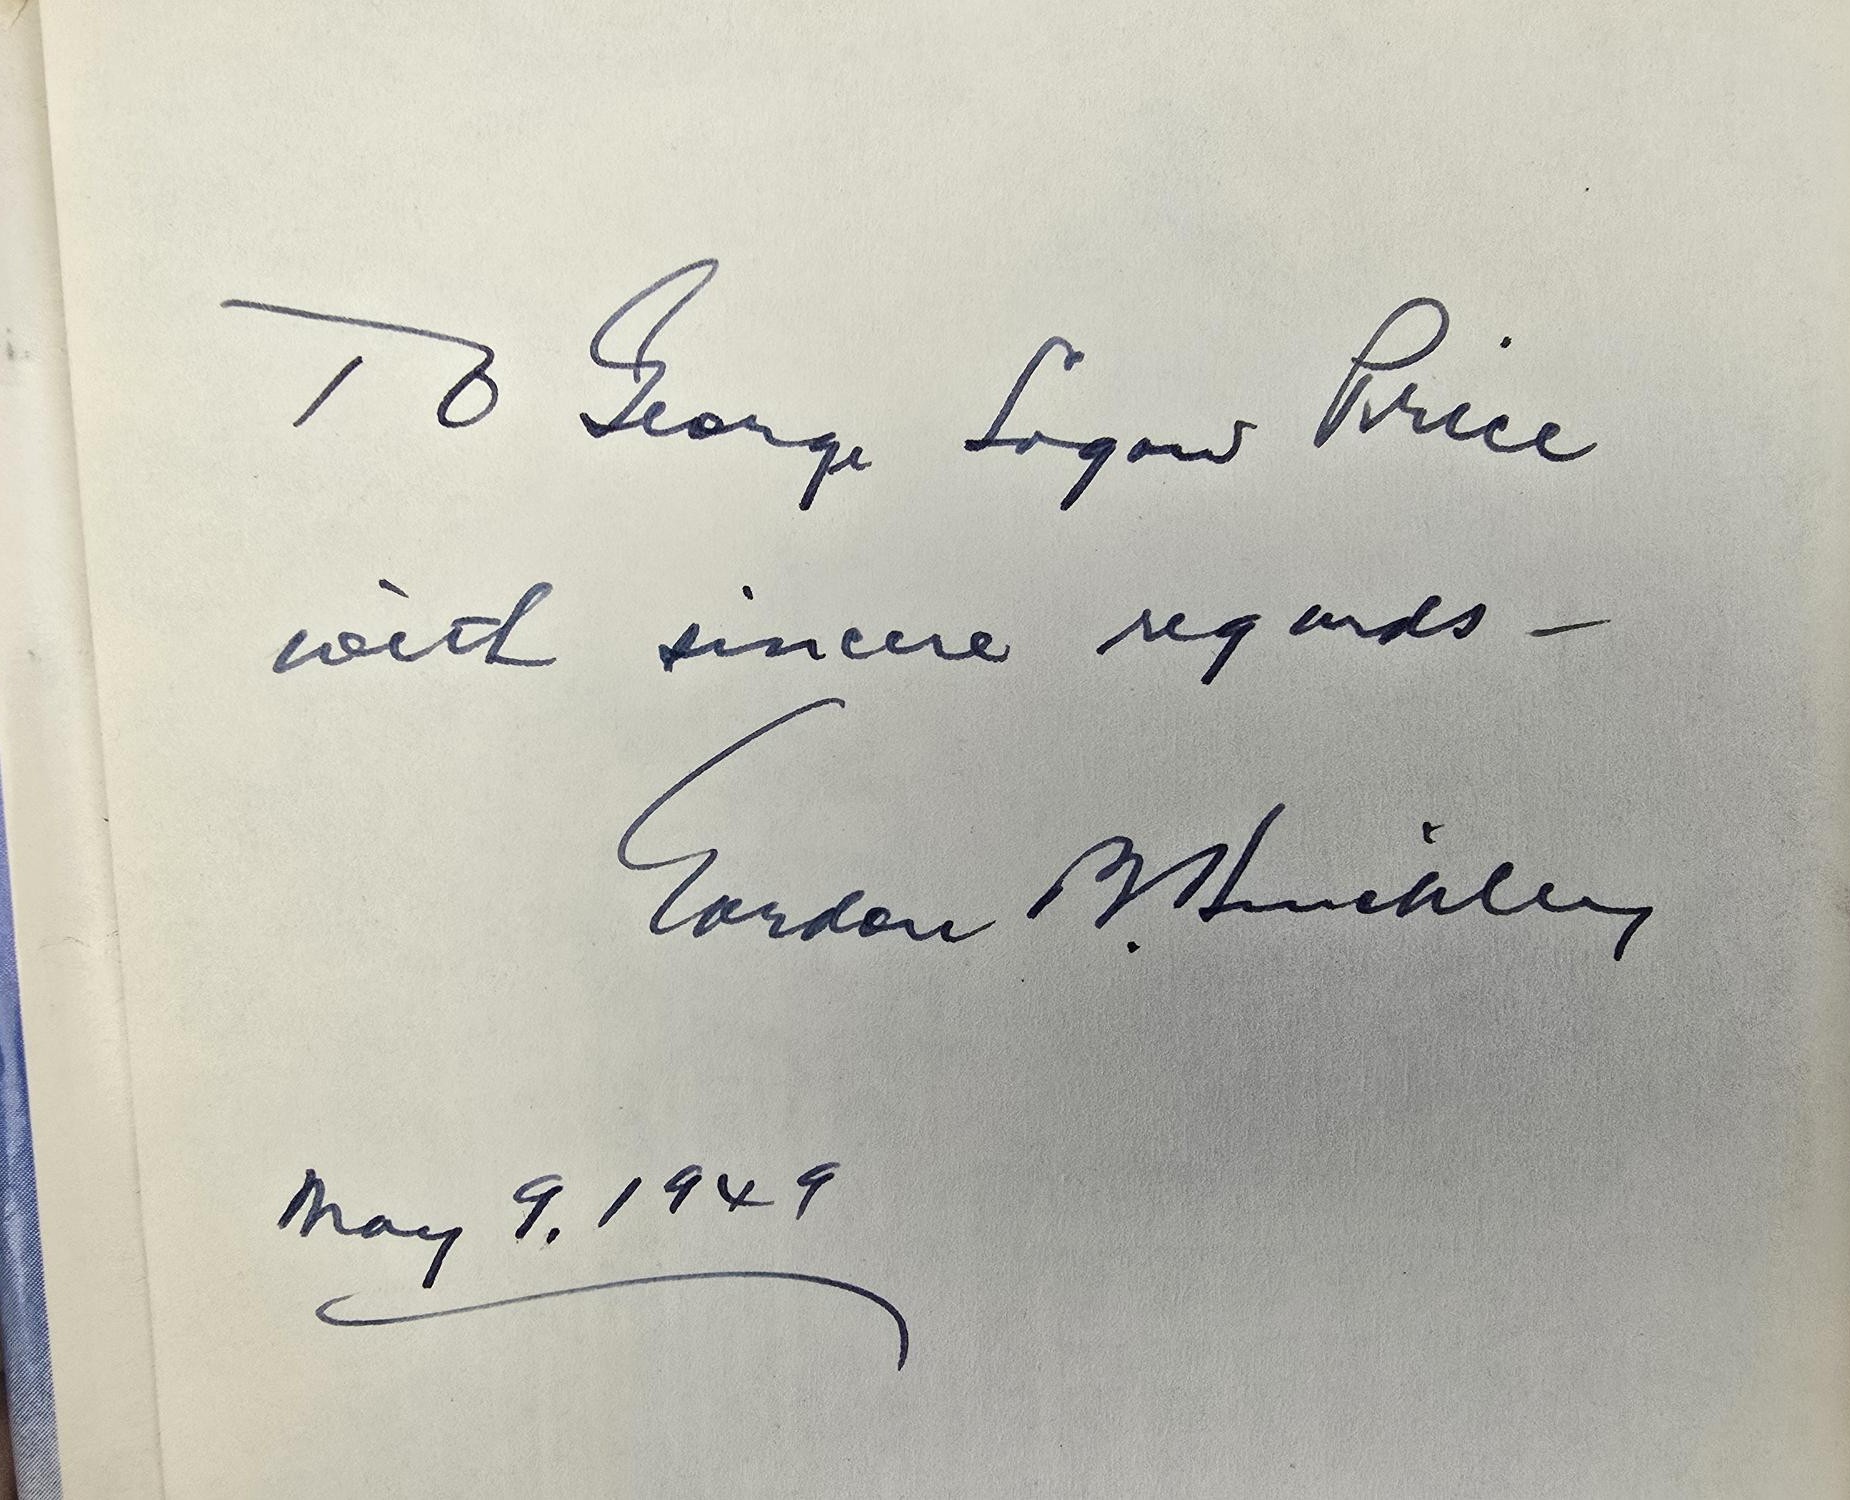 To George Logan Price
with sincere regards —
Gordon B. Hinckley
May 9, 1949